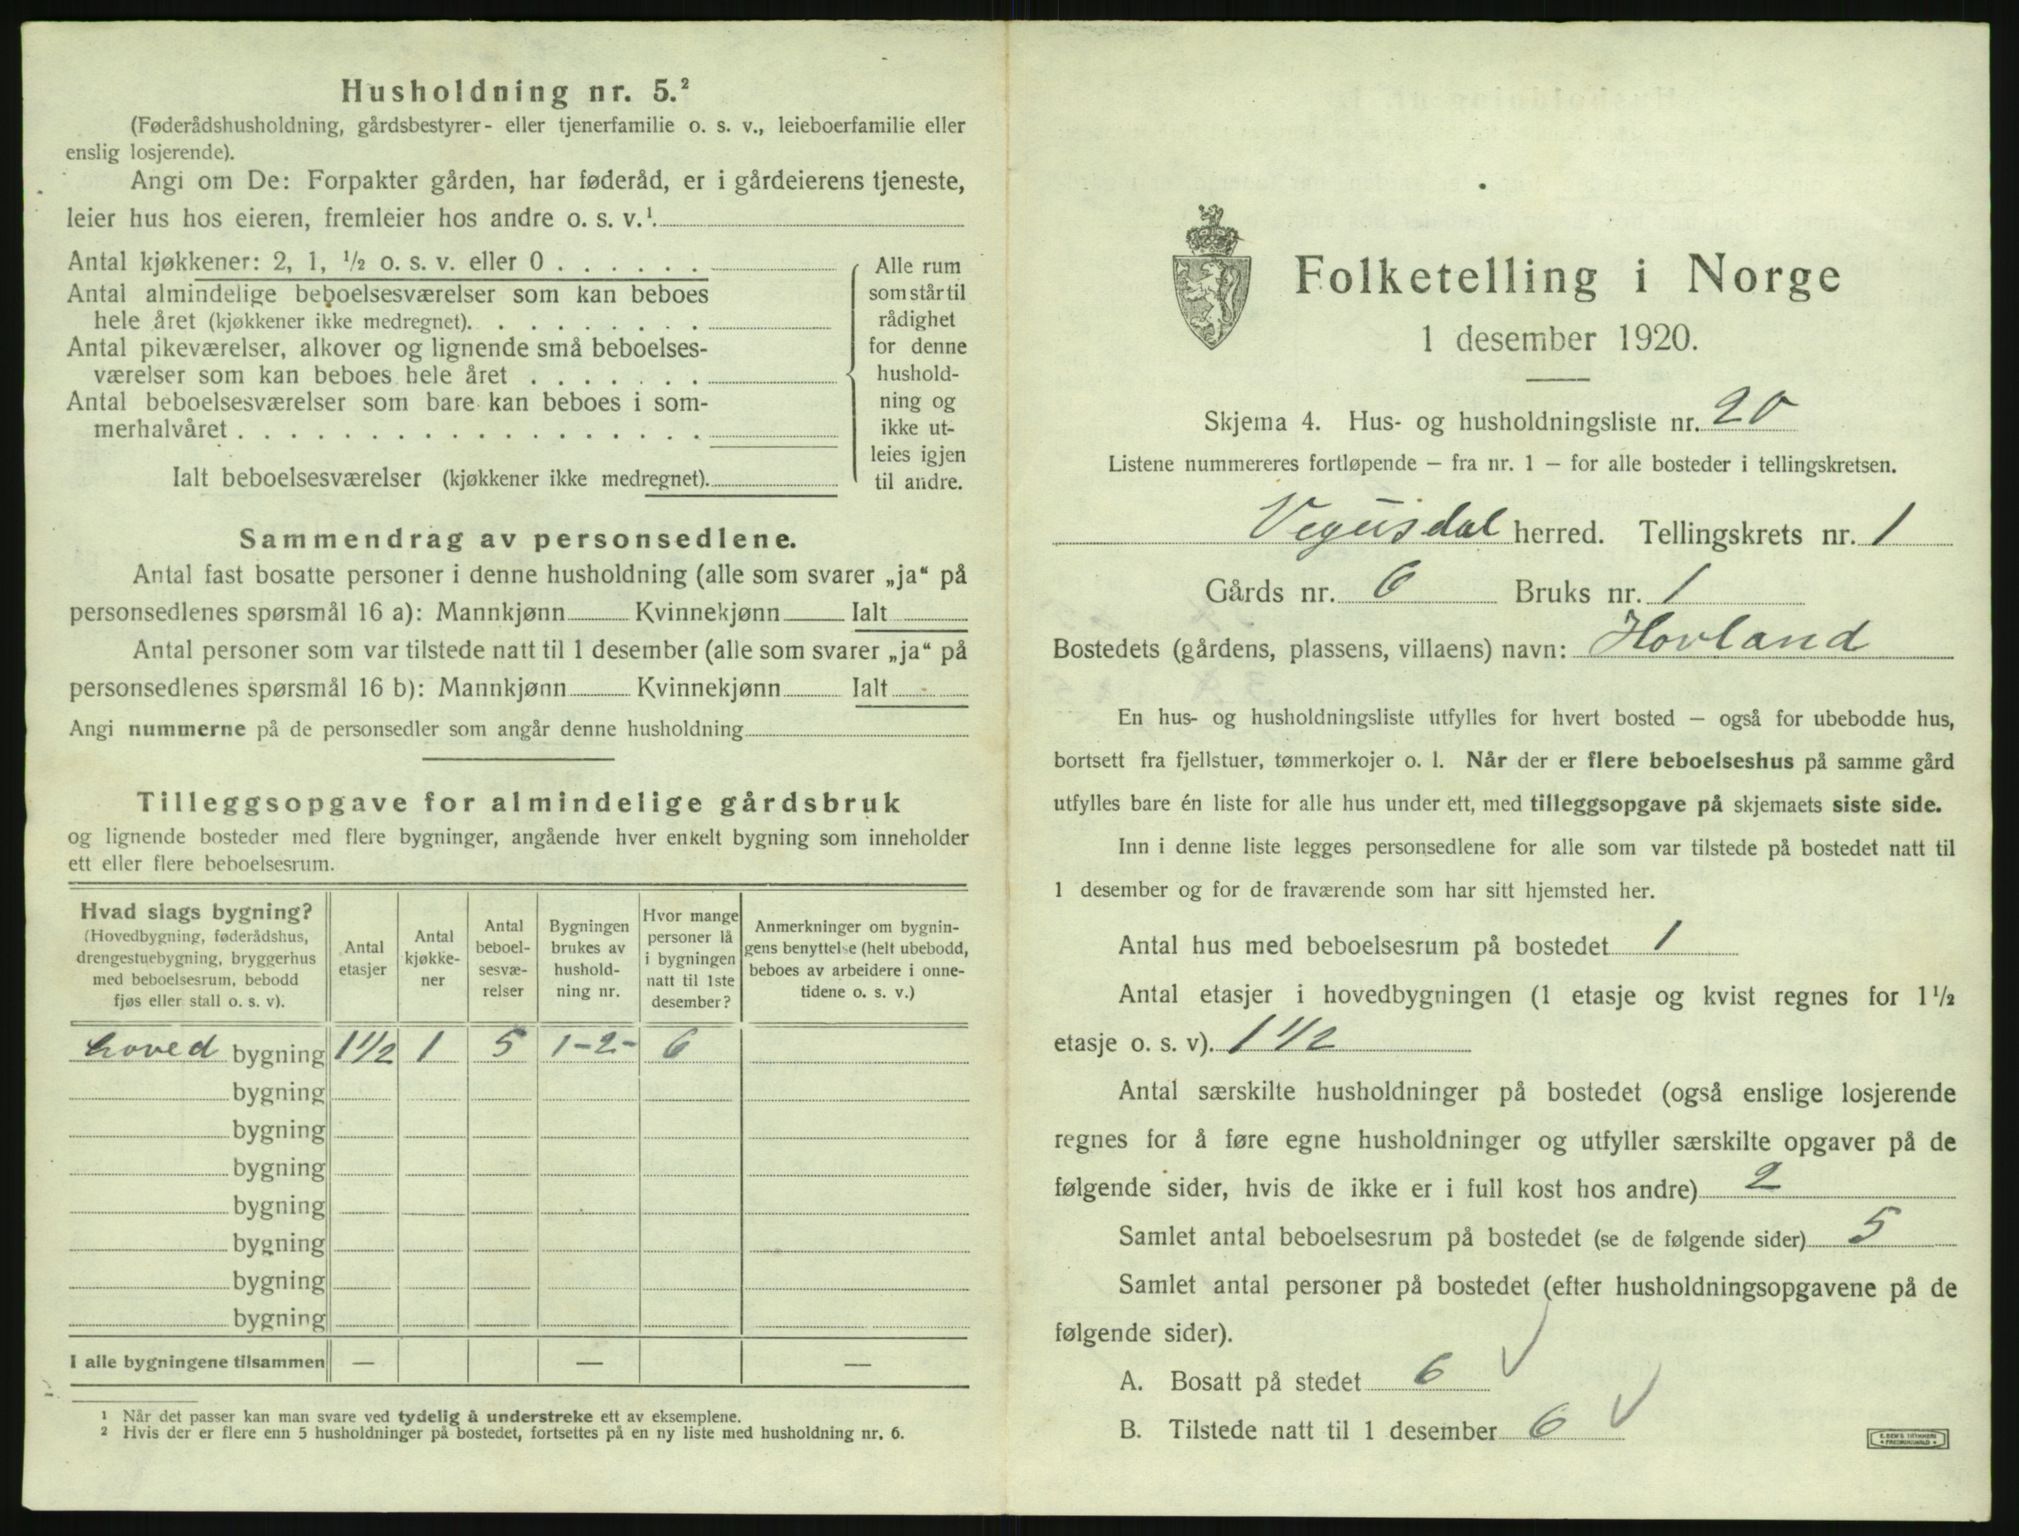 Husholdning nr. 5.²
(Føderådshusholdning, gårdsbestyrer- eller tjenerfamilie o. s. v., leieboerfamilie eller
enslig losjerende).
Angi om De: Forpakter gården, har føderåd, er i gårdeierens tjeneste,
leier hus hos eieren, fremleier hos andre o. s. v.¹.
Antal kjøkkener: 2, 1, ½ o. s. v. eller 0 . . . . . .
Antal almindelige beboelsesværelser som kan beboes
hele året (kjøkkener ikke medregnet). . . . . . . . .
Antal pikeværelser, alkover og lignende små beboelses-
værelser som kan beboes hele året . . . . . . .
Antal beboelsesværelser som bare kan beboes i som-
merhalvåret . . . . . . . . . . . . . . . . . .
Ialt beboelsesværelser (kjøkkener ikke medregnet).
Alle rum
som står til
rådighet
for denne
hushold-
ning og
ikke ut-
leies igjen
til andre.
Sammendrag av personsedlene.
Antal fast bosatte personer i denne husholdning (alle som svarer „ja“ på
personsedlenes spørsmål 16 a): Mannkjønn Kvinnekjønn Ialt
Antal personer som var tilstede natt til 1 desember (alle som svarer „ja“ på
personsedlenes spørsmål 16 b): Mannkjønn Kvinnekjønn Ialt
Angi nummerne på de personsedler som angår denne husholdning
Tilleggsopgave for almindelige gårdsbruk
og lignende bosteder med flere bygninger, angående hver enkelt bygning som inneholder
ett eller flere beboelsesrum.
Hvad slags bygning?
(Hovedbygning, føderådshus,
drengestuebygning, bryggerhus
med beboelsesrum, bebodd
fjøs eller stall o. s. v).
Antal
etasjer
Antal
kjøkke-
ner
Antal
beboel-
sesvæ-
relser
Bygningen
brukes av
hushold-
ning nr.
Hvor mange
personer lå
i bygningen
natt til 1ste
desember?
Anmerkninger om bygnin-
gens benyttelse (helt ubebodd,
beboes av arbeidere i onne-
tidene o. s. v.)
hoved bygning 1 1/2 1 5 1-2- 6
bygning
bygning
bygning
bygning
bygning
bygning
bygning
I alle bygningene tilsammen — — —
¹ Når det passer kan man svare ved tydelig å understreke ett av eksemplene.
² Hvis der er flere enn 5 husholdninger på bostedet, fortsettes på en ny liste med husholdning nr. 6.
Folketelling i Norge
1 desember 1920.
Skjema 4. Hus- og husholdningsliste nr. 20
Listene nummereres fortløpende – fra nr. 1 – for alle bosteder i tellingskretsen.
Vegusdal herred. Tellingskrets nr. 1
Gårds nr. 6 Bruks nr. 1
Bostedets (gårdens, plassens, villaens) navn: Hovland
En hus- og husholdningsliste utfylles for hvert bosted – også for ubebodde hus,
bortsett fra fjellstuer, tømmerkojer o. l. Når der er flere beboelseshus på samme gård
utfylles bare én liste for alle hus under ett, med tilleggsopgave på skjemaets siste side.
Inn i denne liste legges personsedlene for alle som var tilstede på bostedet natt til
1 desember og for de fraværende som har sitt hjemsted her.
Antal hus med beboelsesrum på bostedet 1
Antal etasjer i hovedbygningen (1 etasje og kvist regnes for 1½
etasje o. s. v). 1 1/2
Antal særskilte husholdninger på bostedet (også enslige losjerende
regnes for å føre egne husholdninger og utfyller særskilte opgaver på de
følgende sider, hvis de ikke er i full kost hos andre) 2
Samlet antal beboelsesrum på bostedet (se de følgende sider) 5
Samlet antal personer på bostedet (efter husholdningsopgavene på de
følgende sider).
A. Bosatt på stedet 6
B. Tilstede natt til 1 desember 6